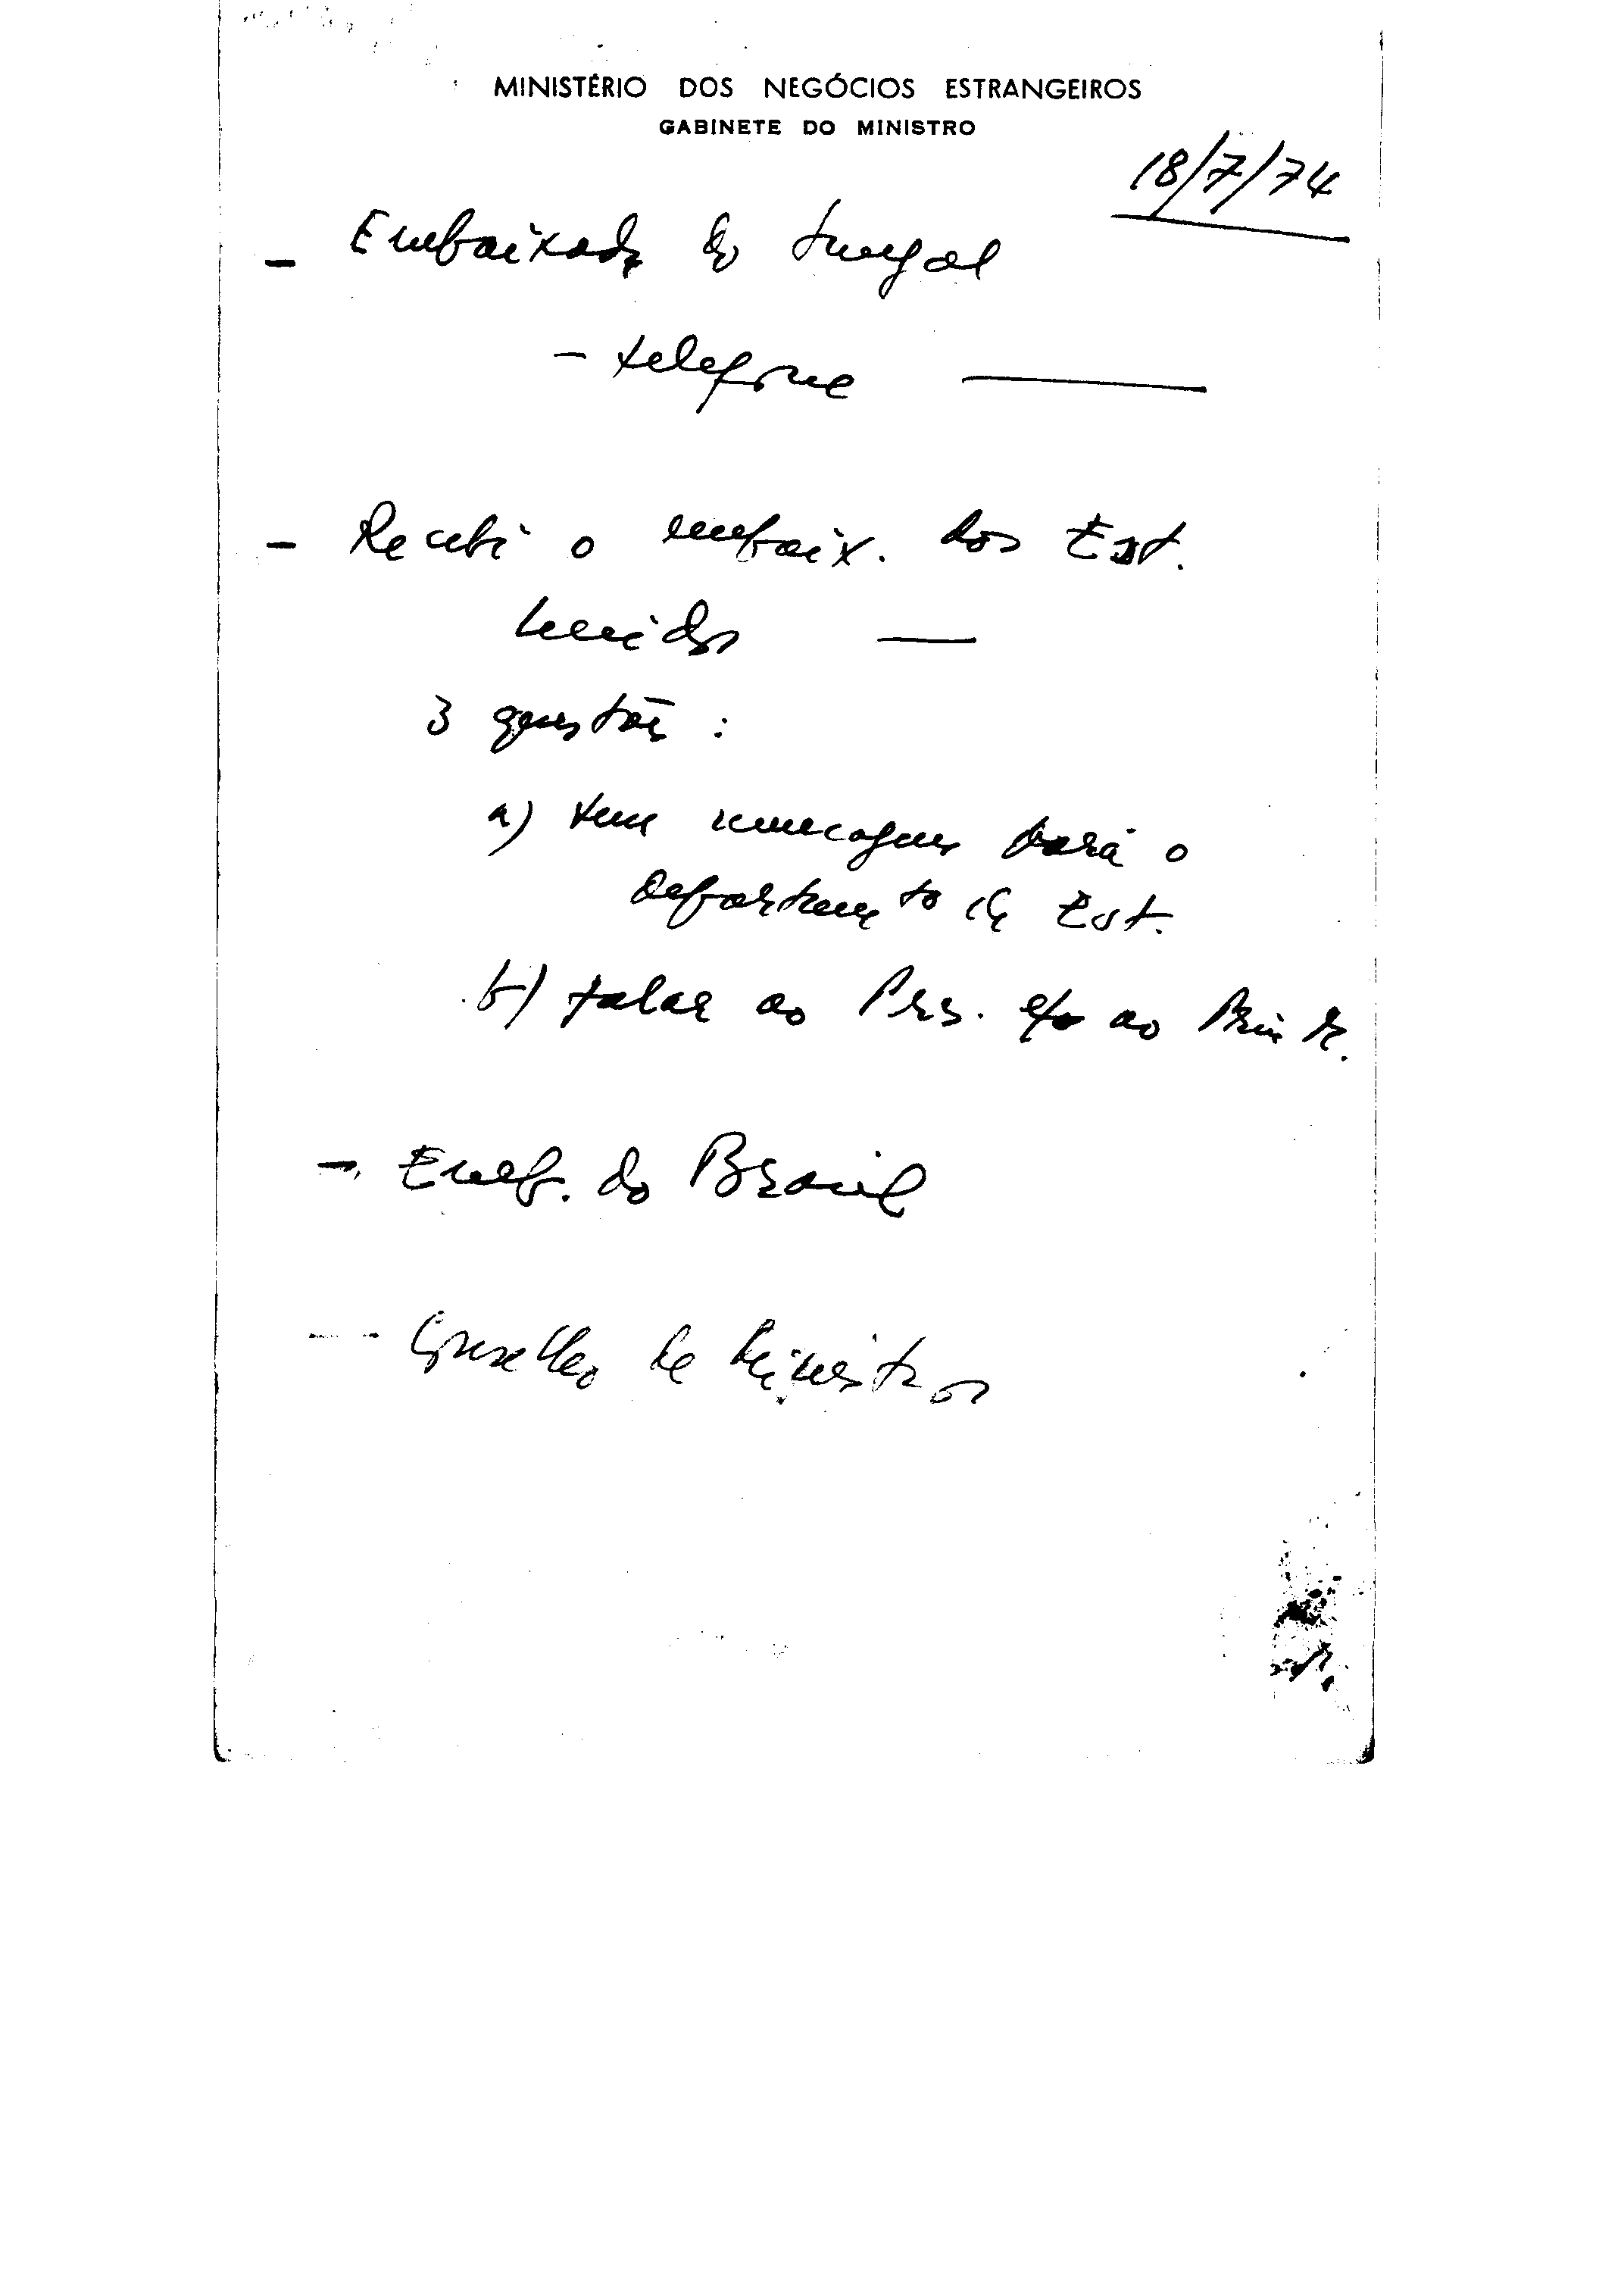 MINISTÉRIO DOS NEGÓCIOS ESTRANGEIROS
GABINETE DO MINISTRO
18/7/74
- Embaixada do Senegal
- telefone —
- Recebi o embaix. dos Est.
Unidos —
3 questões :
a) tem mensagem para o
departamento de Est.
b) falar ao Pres. e/o ao Prim M.
- Emb. do Brasil
- Conselho de Ministros